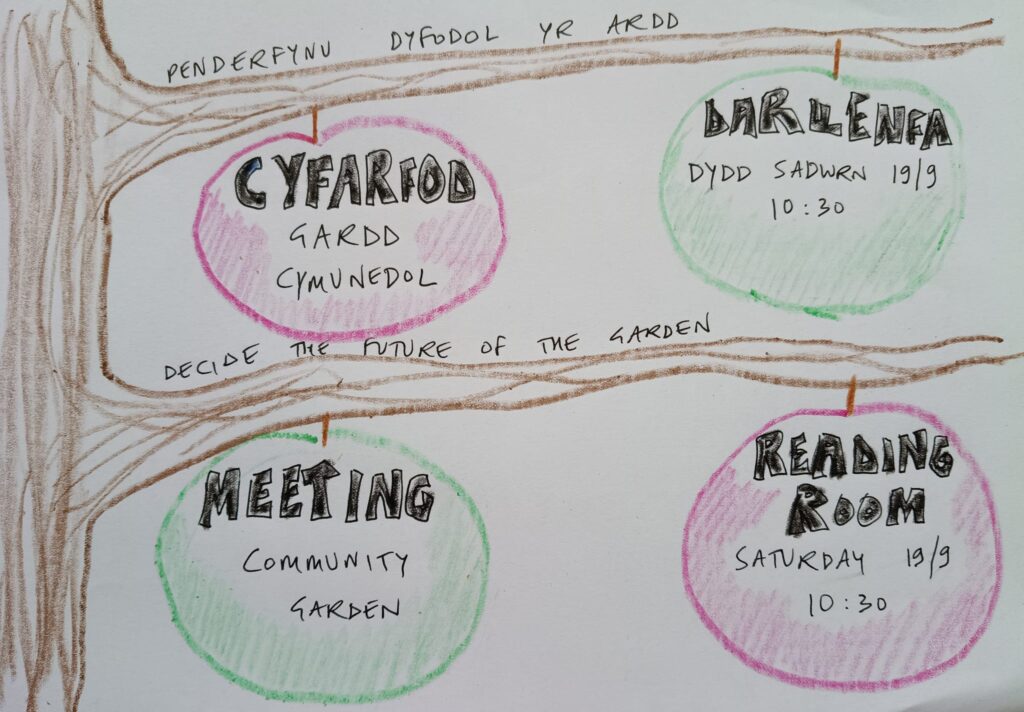 PENDERFYNU DYFODOL YR ARDD
CYFARFOD
GARDD
CYMUNEDOL
DARLLENFA
DYDD SADWRN 19/9
10:30
DECIDE THE FUTURE OF THE GARDEN
MEETING
COMMUNITY
GARDEN
READING
ROOM
SATURDAY 19/9
10:30